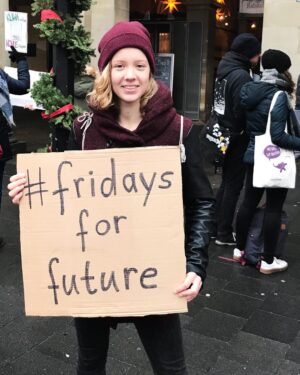 #fridays
for
future